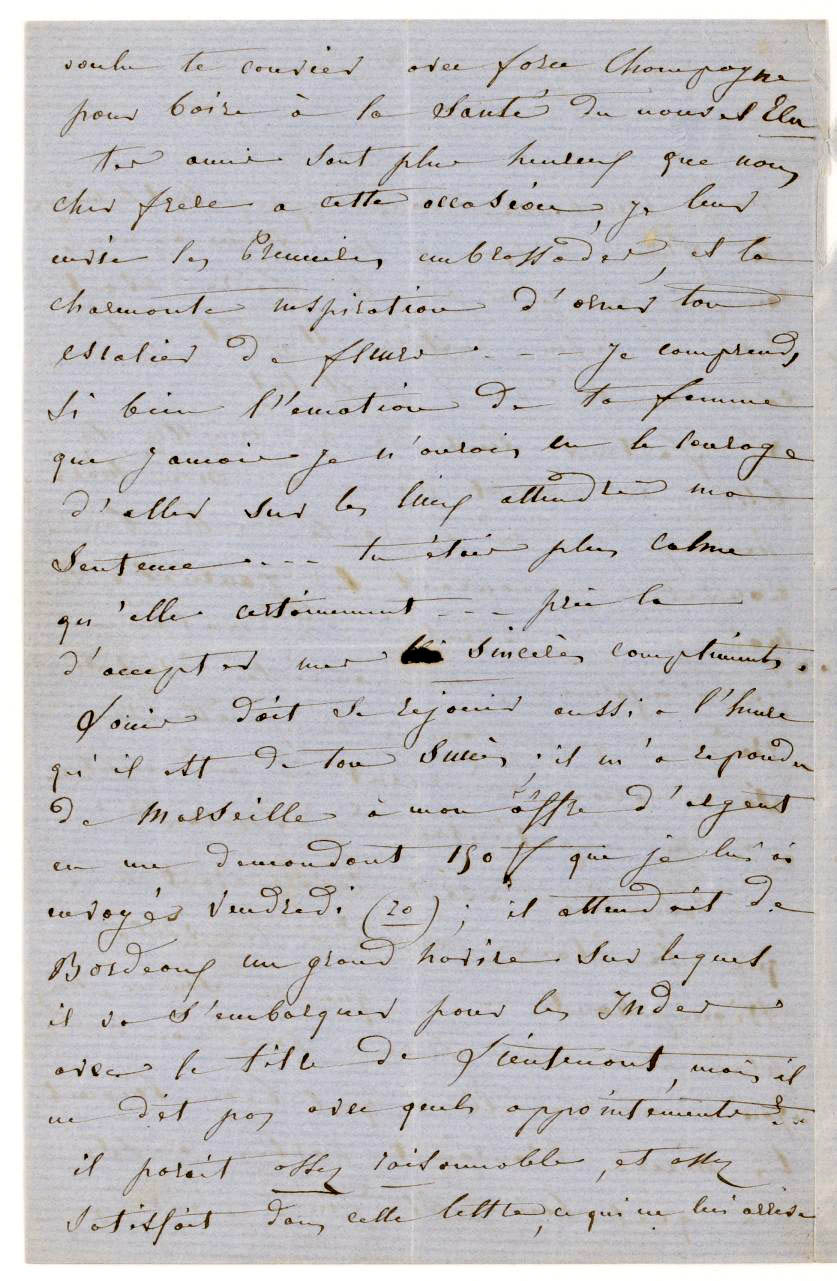 voulu te convier avec force Champagne
pour boire à la Santé du nouvel Elu
tes amis sont plus heureux que nous
cher frere a cette occasion, je leur
envie les Premieres embrassades, et la
charmante inspiration d'orner ton
escalier de fleurs - - - je comprends
si bien l'emotion de ta femme
que jamais je n'aurois eu le courage
d'aller sur les lieux attendre ma
Sentence - - - tu étais plus calme
qu'elle certainement - - - prie la
d'accepter mes sincères compliments.
Louis doit se rejouir aussi a l'heure
qu'il est de ton Succès, il m'a repondu
de Marseille à mon offre d'argent
en me demandant 150 ff que je lui ai
envoyés Vendredi (20) ; il attendait de
Bordeaux un grand navire sur lequel
il va s'embarquer pour les Indes
avec le titre de Lieutenant, mais il
ne dit pas avec quels appointements?..
il parait assez raisonnable, et assez
satisfait dans cette lettre, ce qui ne lui arrive